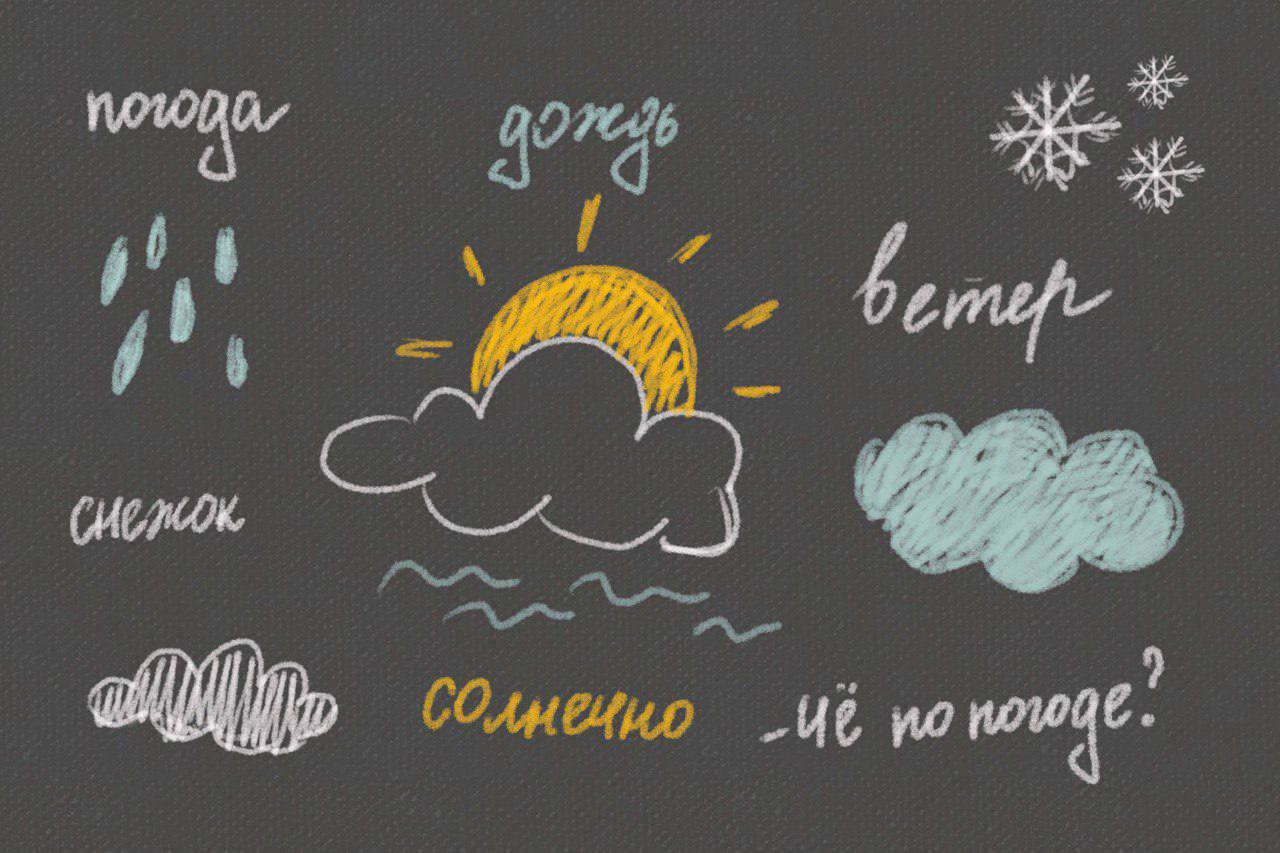 погода
дождь
ветер
снежок
солнечно
-Чё по погоде?